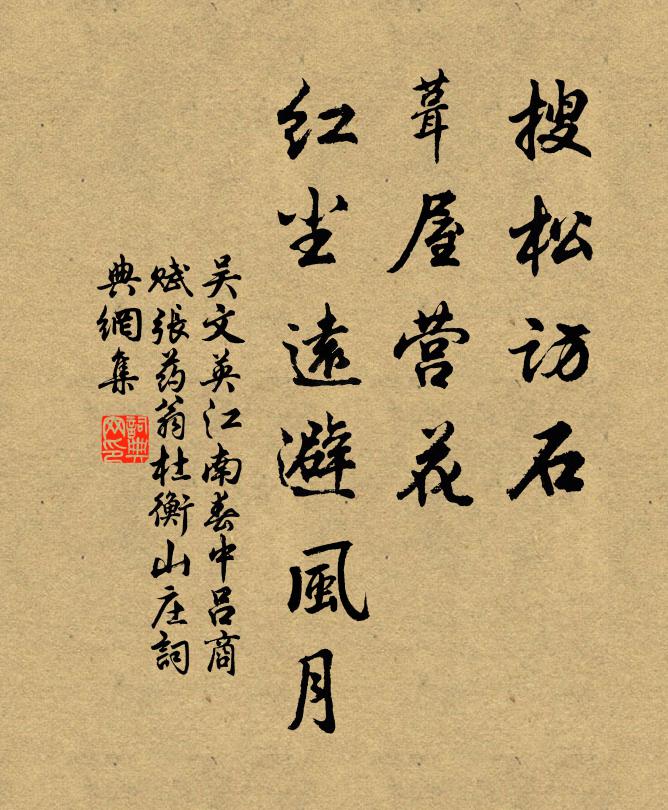 搜松访石
葺屋营花
红尘遠避風月
吴文英江南春中吕商
赋張药翁杜衡山庄詞
典網集
詞典網印